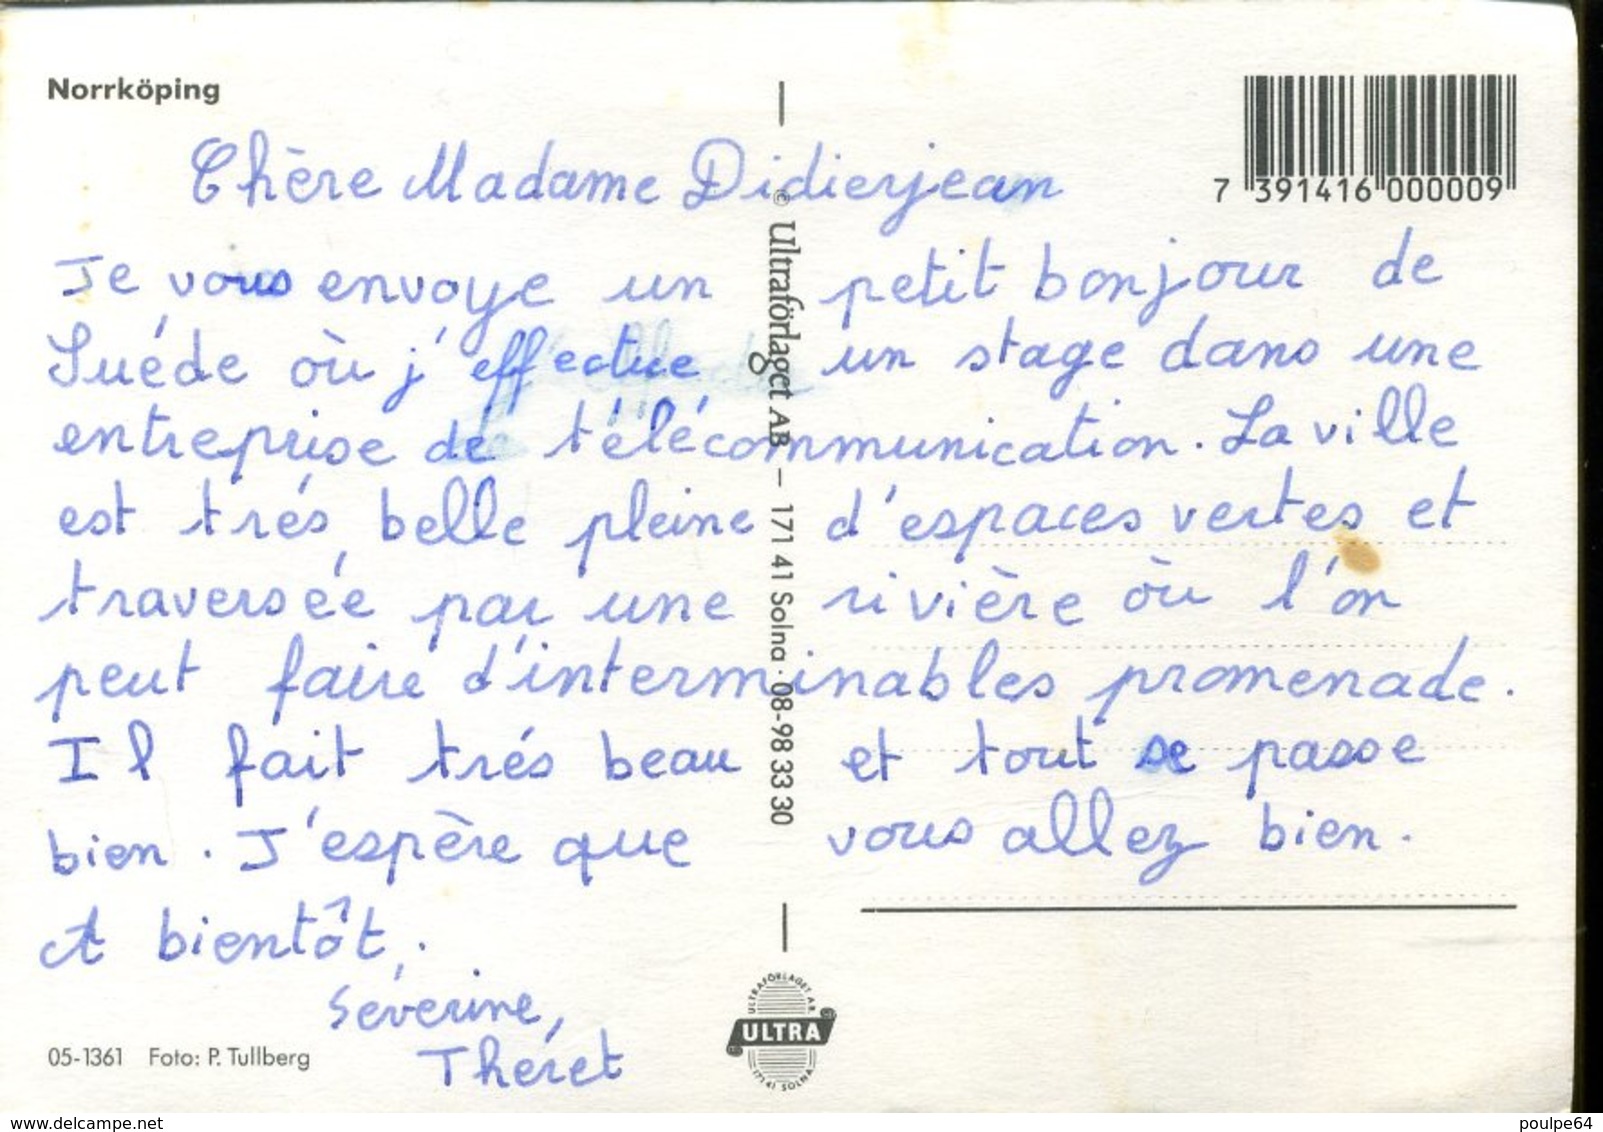 Norrköping
7 391416 000009
Chère Madame Didierjean
Je vous envoye un petit bonjour de
Suéde où j'effectue un stage dans une
entreprise de télécommunication. La ville
est trés belle pleine d'espaces vertes et
traversée par une rivière où l'on
peut faire d'interminables promenade.
Il fait trés beau et tout se passe
bien. J'espère que vous allez bien.
A bientôt,.
Séverine,
Théret
© Ultraförlaget AB – 171 41 Solna · 08-98 33 30
ULTRAFÖRLAGET AB
ULTRA
171 41 SOLNA
05-1361 Foto: P. Tullberg
www.delcampe.net
poulpe64